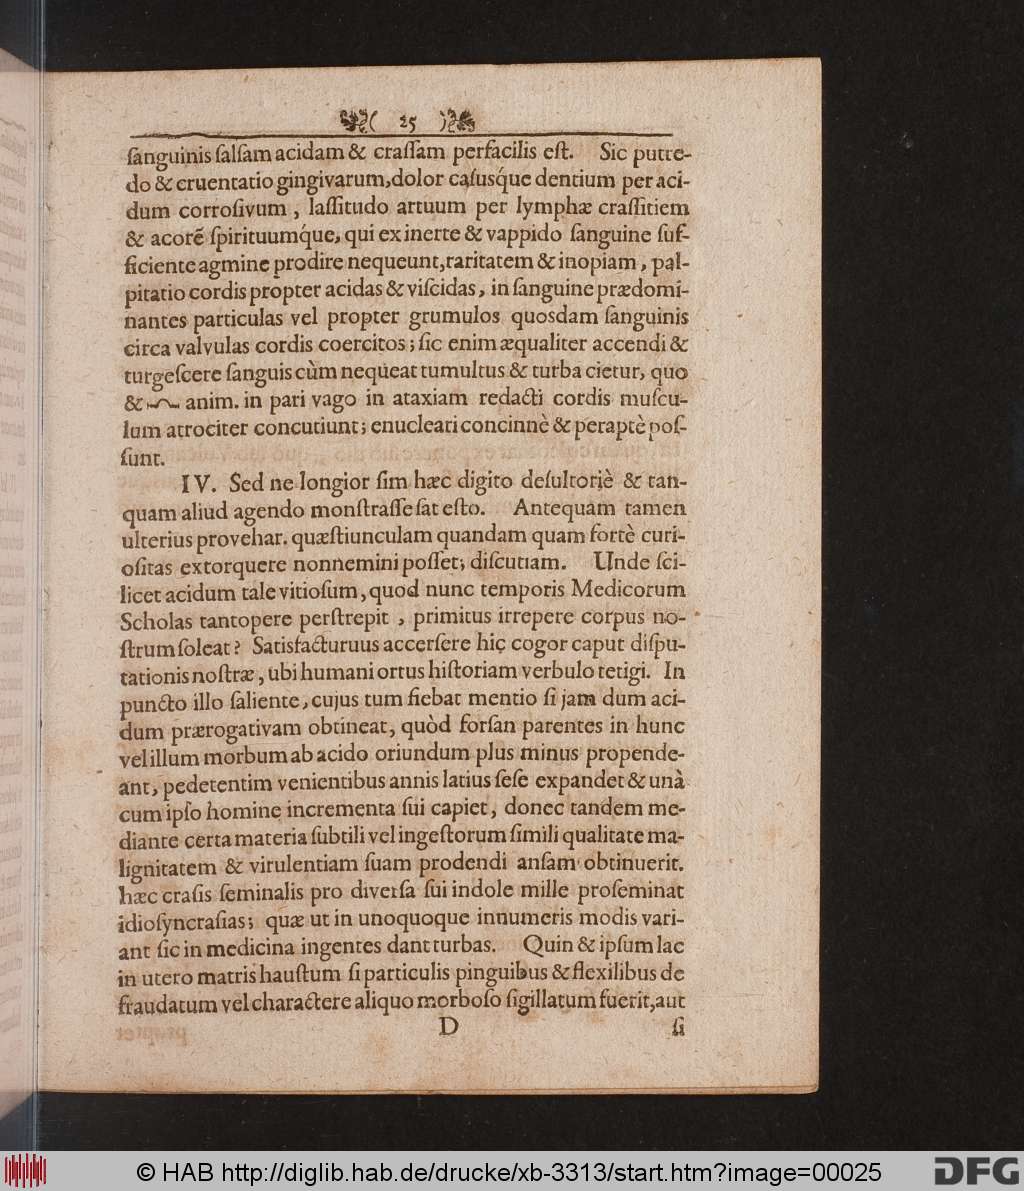 ( 25 )
ſanguinis ſalſam acidam & craſſam perfacilis eſt. Sic putre-
do & cruentatio gingivarum, dolor caſusq́ue dentium per aci-
dum corroſivum , laſſitudo artuum per lymphæ craſſitiem
& acorẽ ſpirituumq́ue, qui ex inerte & vappido ſanguine ſuf-
ficiente agmine prodire nequeunt, raritatem & inopiam, pal-
pitatio cordis propter acidas & viſcidas, in ſanguine prædomi-
nantes particulas vel propter grumulos quosdam ſanguinis
circa valvulas cordis coercitos; ſic enim æqualiter accendi &
turgeſcere ſanguis cùm nequeat tumultus & turba cietur, quo
& anim. in pari vago in ataxiam redacti cordis muſcu-
lum atrociter concutiunt; enucleari concinnè & peraptè poſ-
ſunt.
IV. Sed ne longior ſim hæc digito deſultoriè & tan-
quam aliud agendo monſtraſſe ſat eſto. Antequam tamen
ulterius provehar. quæſtiunculam quandam quam fortè curi-
oſitas extorquere nonnemini poſſet; diſcutiam. Unde ſci-
licet acidum tale vitioſum, quod nunc temporis Medicorum
Scholas tantopere perſtrepit , primitus irrepere corpus no-
ſtrum ſoleat? Satisfacturuus accerſere hic cogor caput diſpu-
tationis noſtræ, ubi humani ortus hiſtoriam verbulo tetigi. In
puncto illo ſaliente, cujus tum fiebat mentio ſi jam dum aci-
dum prærogativam obtineat, quòd forſan parentes in hunc
vel illum morbum ab acido oriundum plus minus propende-
ant, pedetentim venientibus annis latius ſeſe expandet & unà
cum ipſo homine incrementa ſui capiet, donec tandem me-
diante certa materia ſubtili vel ingeſtorum ſimili qualitate ma-
lignitatem & virulentiam ſuam prodendi anſam obtinuerit.
hæc craſis ſeminalis pro diverſa ſui indole mille proſeminat
idioſyncraſias; quæ ut in unoquoque innumeris modis vari-
ant ſic in medicina ingentes dant turbas. Quin & ipſum lac
in utero matris hauſtum ſi particulis pinguibus & flexilibus de
fraudatum vel charactere aliquo morboſo ſigillatum fuerit, aut
D ſi
© HAB http://diglib.hab.de/drucke/xb-3313/start.htm?image=00025 DFG